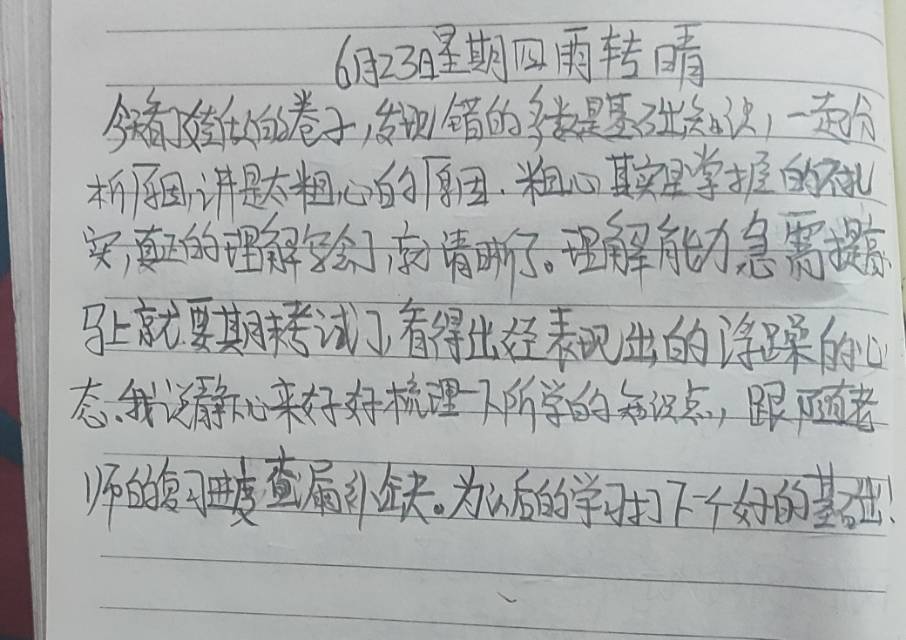 6月23日星期四雨转晴
今天看了娃做的卷子,发现错的多数是基础知识,一起分
析原因,讲是太粗心的原因.粗心其实是掌握的不扎
实,真正的理解学会了,就清晰了。理解能力急需提高.
马上就要期末考试了,看得出经表现出的浮躁的心
态、我说静下心来好好梳理一下所学的知识点,跟随老
师的复习进度查漏补缺。为以后的学习打下一个好的基础!